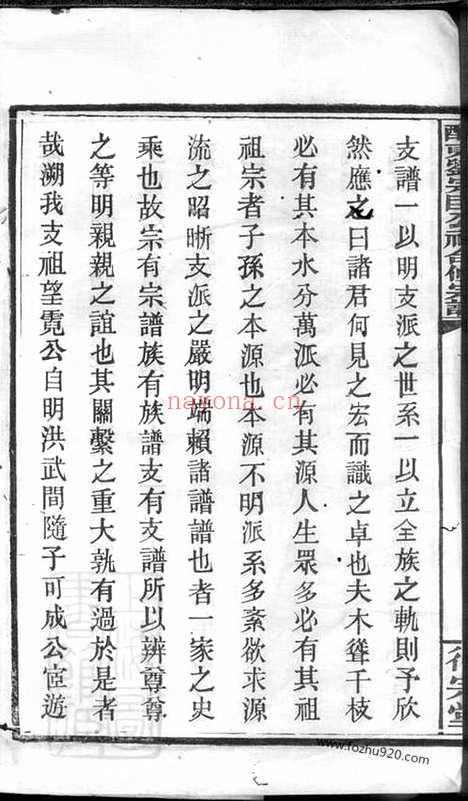 支譜一以明支派之世系一以立全族之軌則予欣
然應之曰諸君何見之宏而識之卓也夫木聳千枝
必有其本水分萬派必有其源人生眾多必有其祖
祖宗者子孫之本源也本源不明派系多紊欲求源
流之昭晰支派之嚴明端賴諸譜譜也者一家之史
乘也故宗有宗譜族有族譜支有支譜所以辨尊尊
之等明親親之誼也其關繫之重大孰有過於是者
哉溯我支祖望霓公自明洪武間隨子可成公宦遊
nayona.cn
www.fozhu920.com